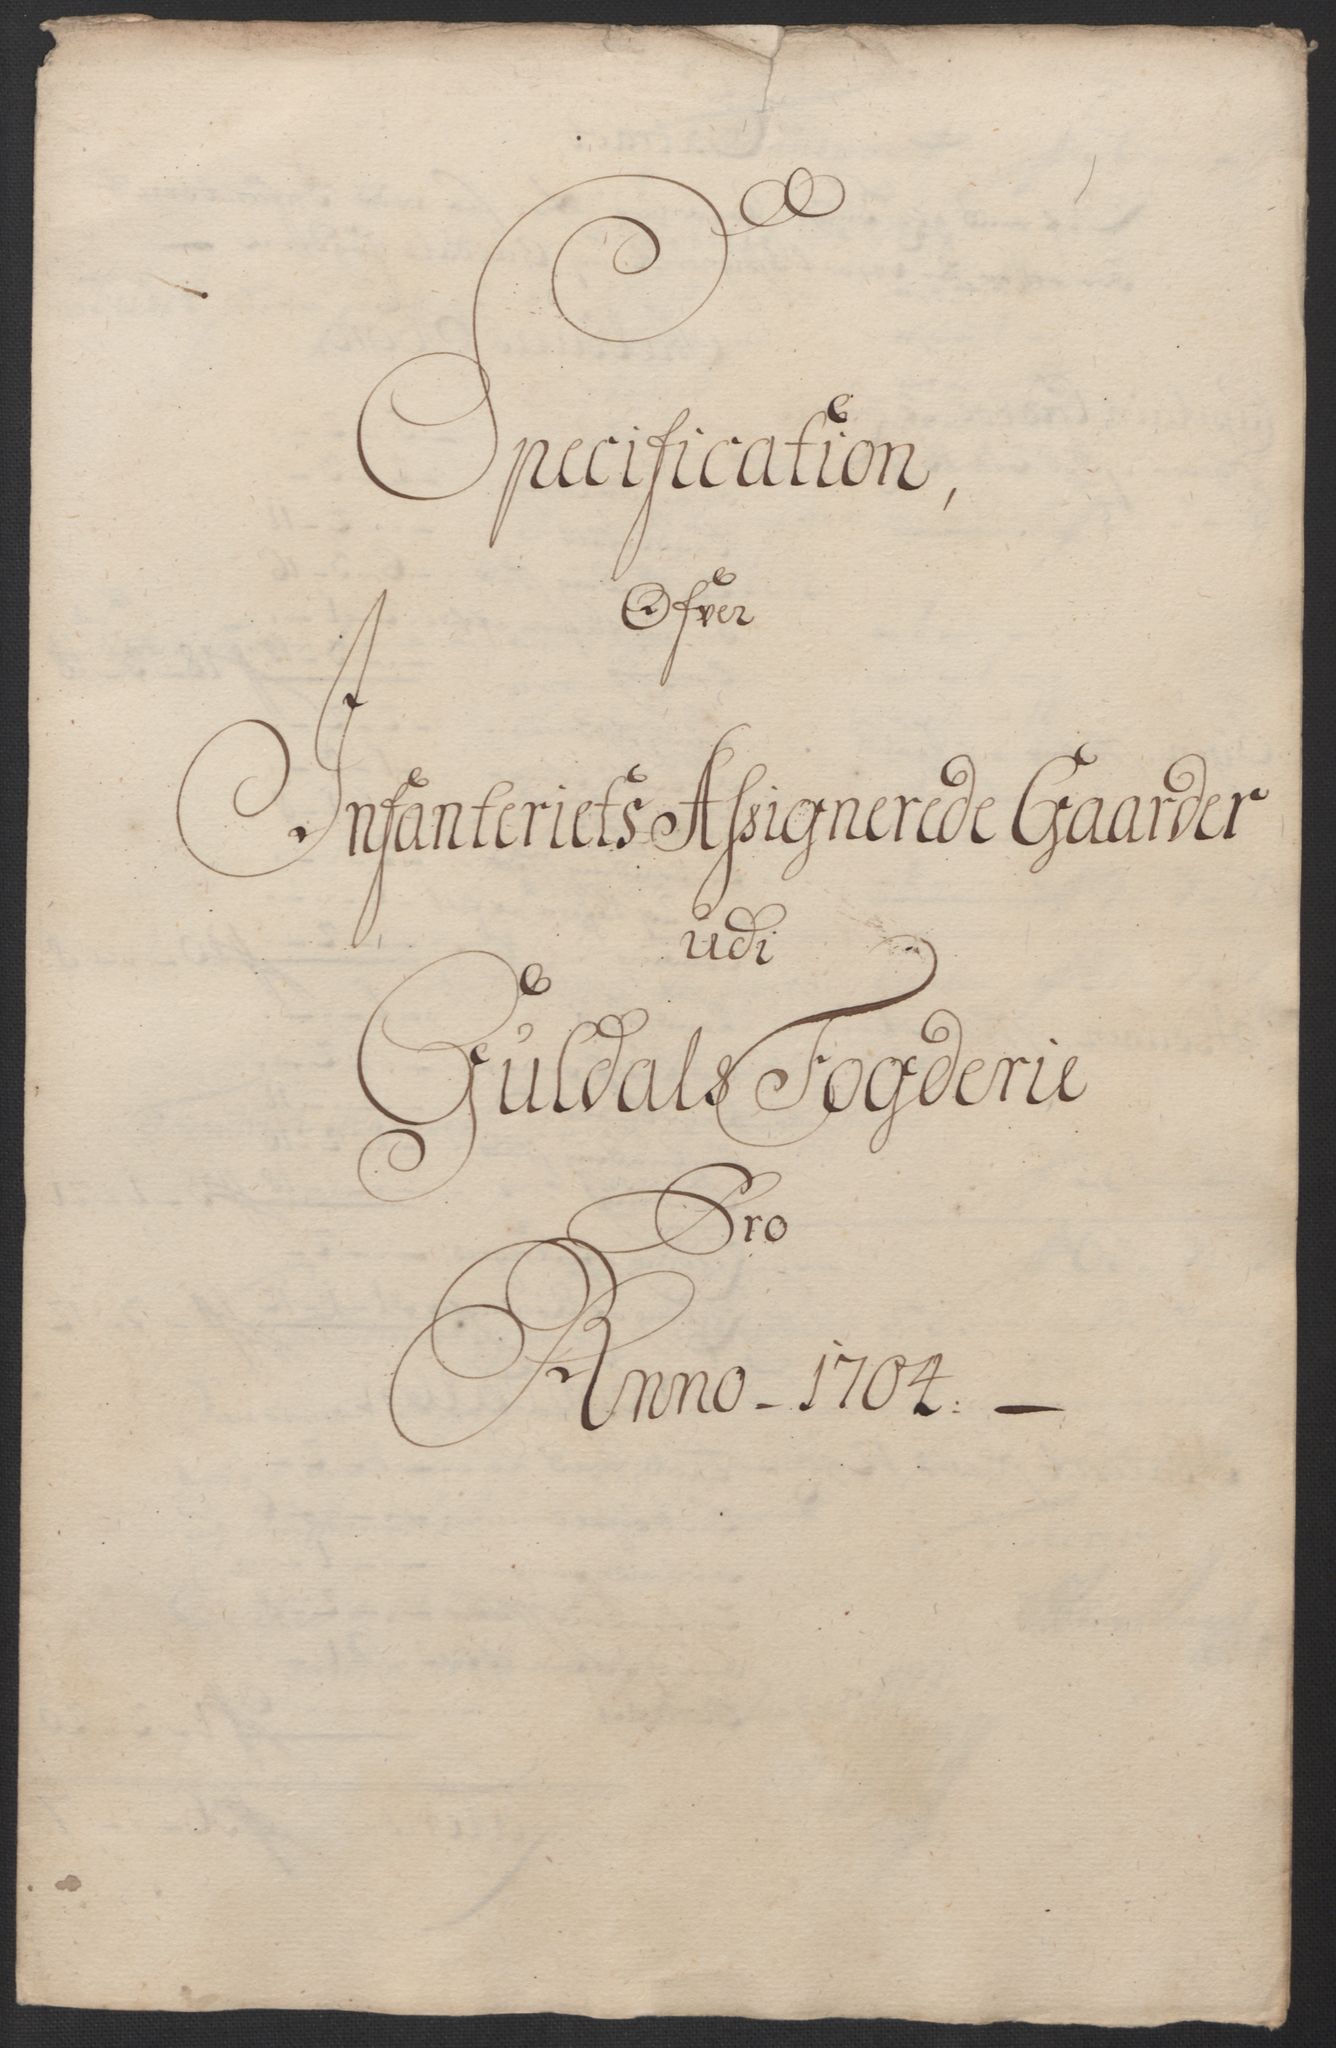 Specification,
Ofver
Infanteriets Assignerede Gaarder
udi
Guldals Fogderie
Pro
Anno - 1704. -